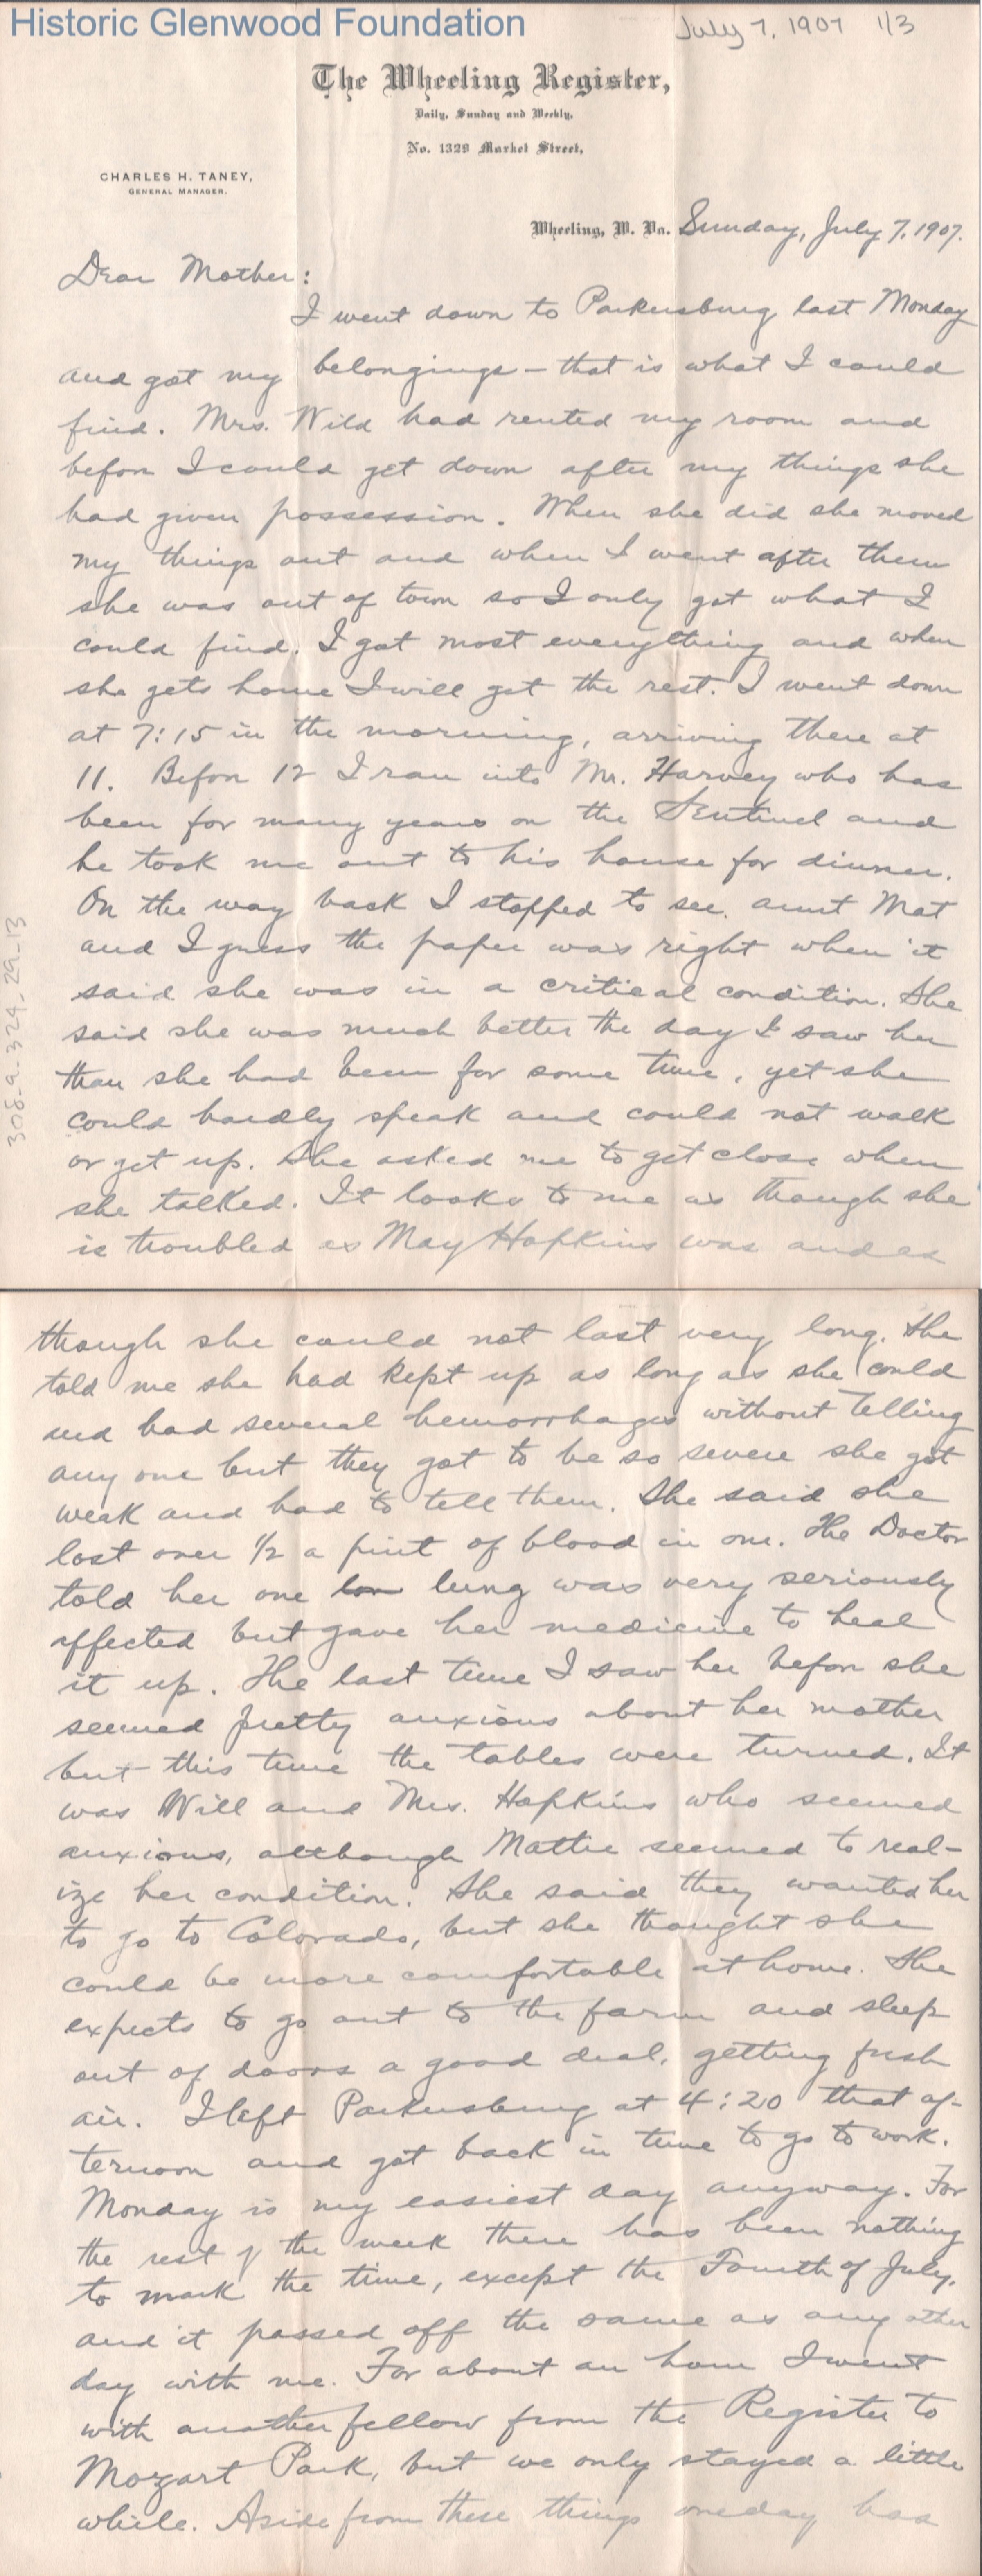 Historic Glenwood Foundation
July 7, 1907 1/3
The Wheeling Register,
Daily, Sunday and Weekly,
No. 1329 Market Street,
CHARLES H. TANEY,
GENERAL MANAGER.
Wheeling, W. Va. Sunday, July 7, 1907.
Dear Mother:
I went down to Parkersburg last Monday
and got my belongings – that is what I could
find. Mrs. Wild had rented my room and
before I could get down after my things she
had given possession. When she did she moved
my things out and when I went after them
she was out of town so I only got what I
could find. I got most everything and when
she gets home I will get the rest. I went down
at 7:15 in the morning, arriving there at
11. Before 12 I ran into Mr. Harvey who has
been for many years on the Sentinel and
he took me out to his house for dinner.
On the way back I stopped to see aunt Mat
and I guess the paper was right when it
said she was in a critical condition. She
said she was much better the day I saw her
than she had been for some time, yet she
could hardly speak and could not walk
or get up. She asked me to get close when
she talked. It looks to me as though she
is troubled as May Hopkins was and as
308-9-324-29-13
though she could not last very long. She
told me she had kept up as long as she could
and had several hemorrhages without telling
any one but they got to be so severe she got
weak and had to tell them. She said she
lost over 1/2 a pint of blood in one. The Doctor
told her one lung was very seriously
affected but gave her medicine to heal
it up. The last time I saw her before she
seemed pretty anxious about her mother
but this time the tables were turned. It
was Will and Mrs. Hopkins who seemed
anxious, although Mattie seemed to real-
ize her condition. She said they wanted her
to go to Colorado, but she thought she
could be more comfortable at home. She
expects to go out to the farm and sleep
out of doors a good deal, getting fresh
air. I left Parkersburg at 4:20 that af-
ternoon and got back in time to go to work.
Monday is my easiest day anyway. For
the rest of the week there has been nothing
to mark the time, except the Fourth of July,
and it passed off the same as any other
day with me. For about an hour I went
with another fellow from the Register to
Mozart Park, but we only stayed a little
while. Aside from these things one day has